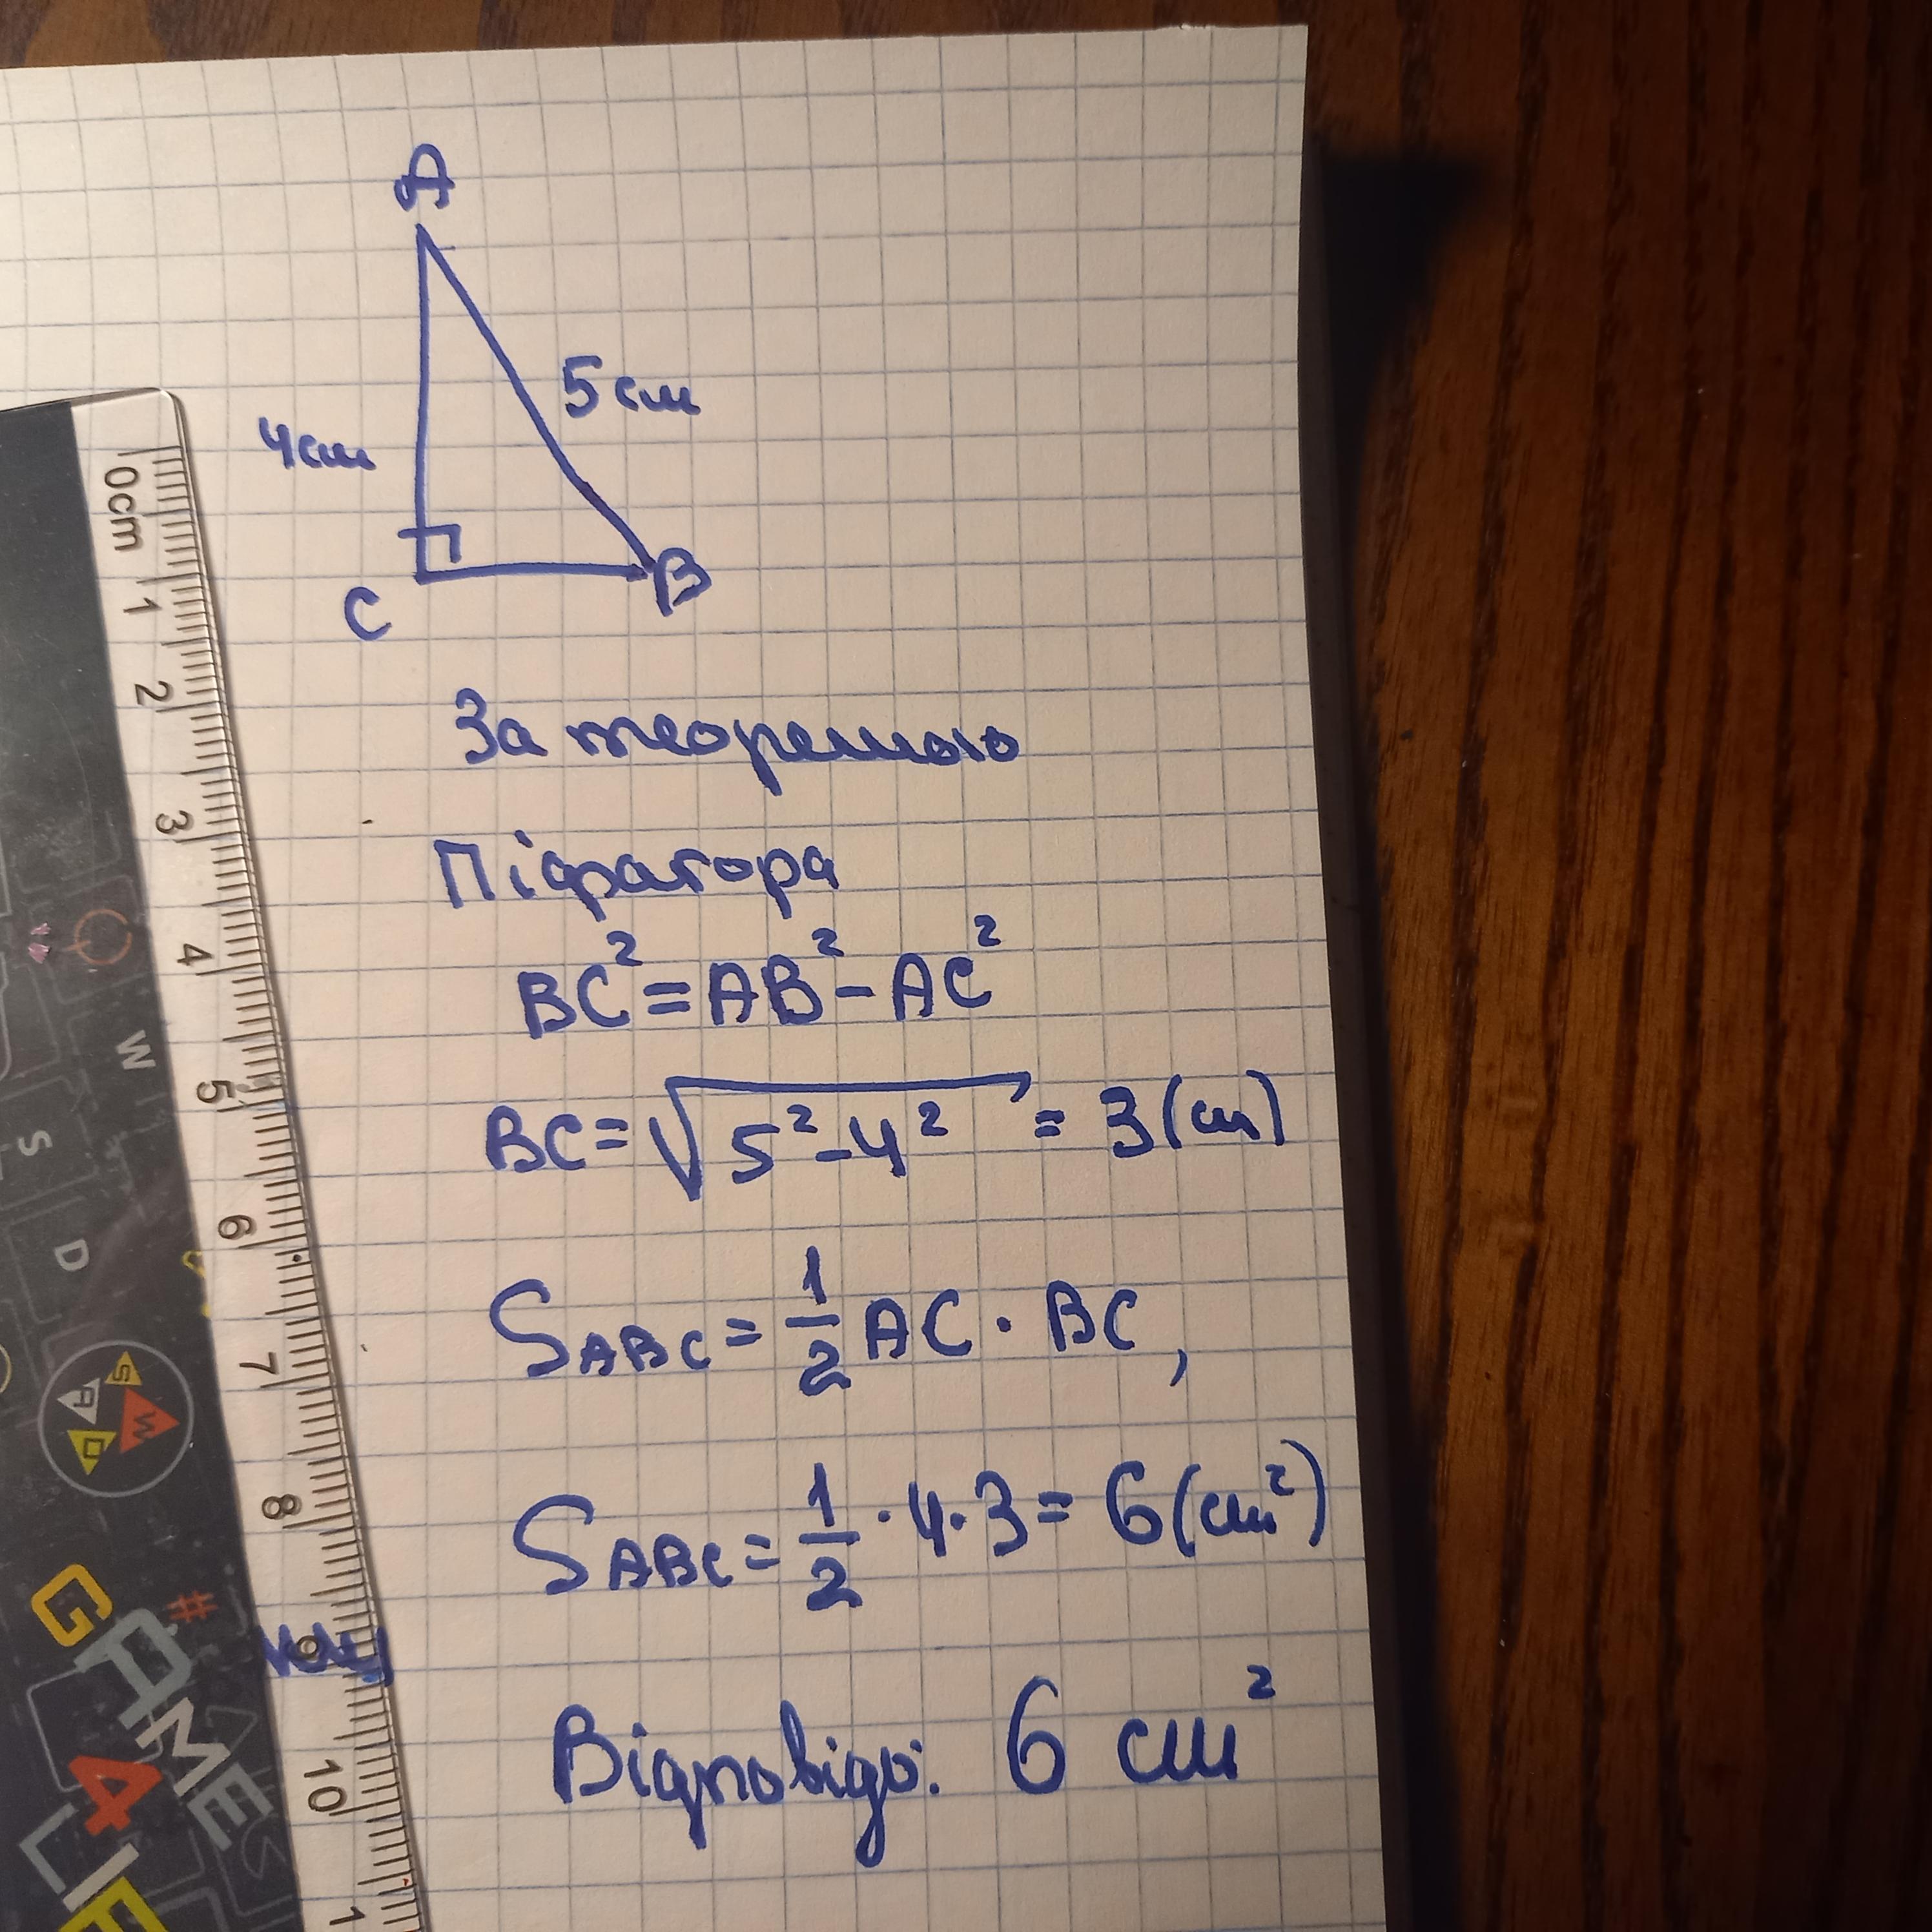 A
5 см
4 см
C
B
За теоремою
Піфагора
BC² = AB² - AC²
BC = √5² - 4² = 3 (см)
S ABC = 1/2 AC · BC,
S ABC = 1/2 · 4 · 3 = 6 (см²)
Відповідь: 6 см²
0cm
1
2
3
4
5
6
7
8
9
10
1
W
S
D
S
A
W
D
#
GAME
4
LIF